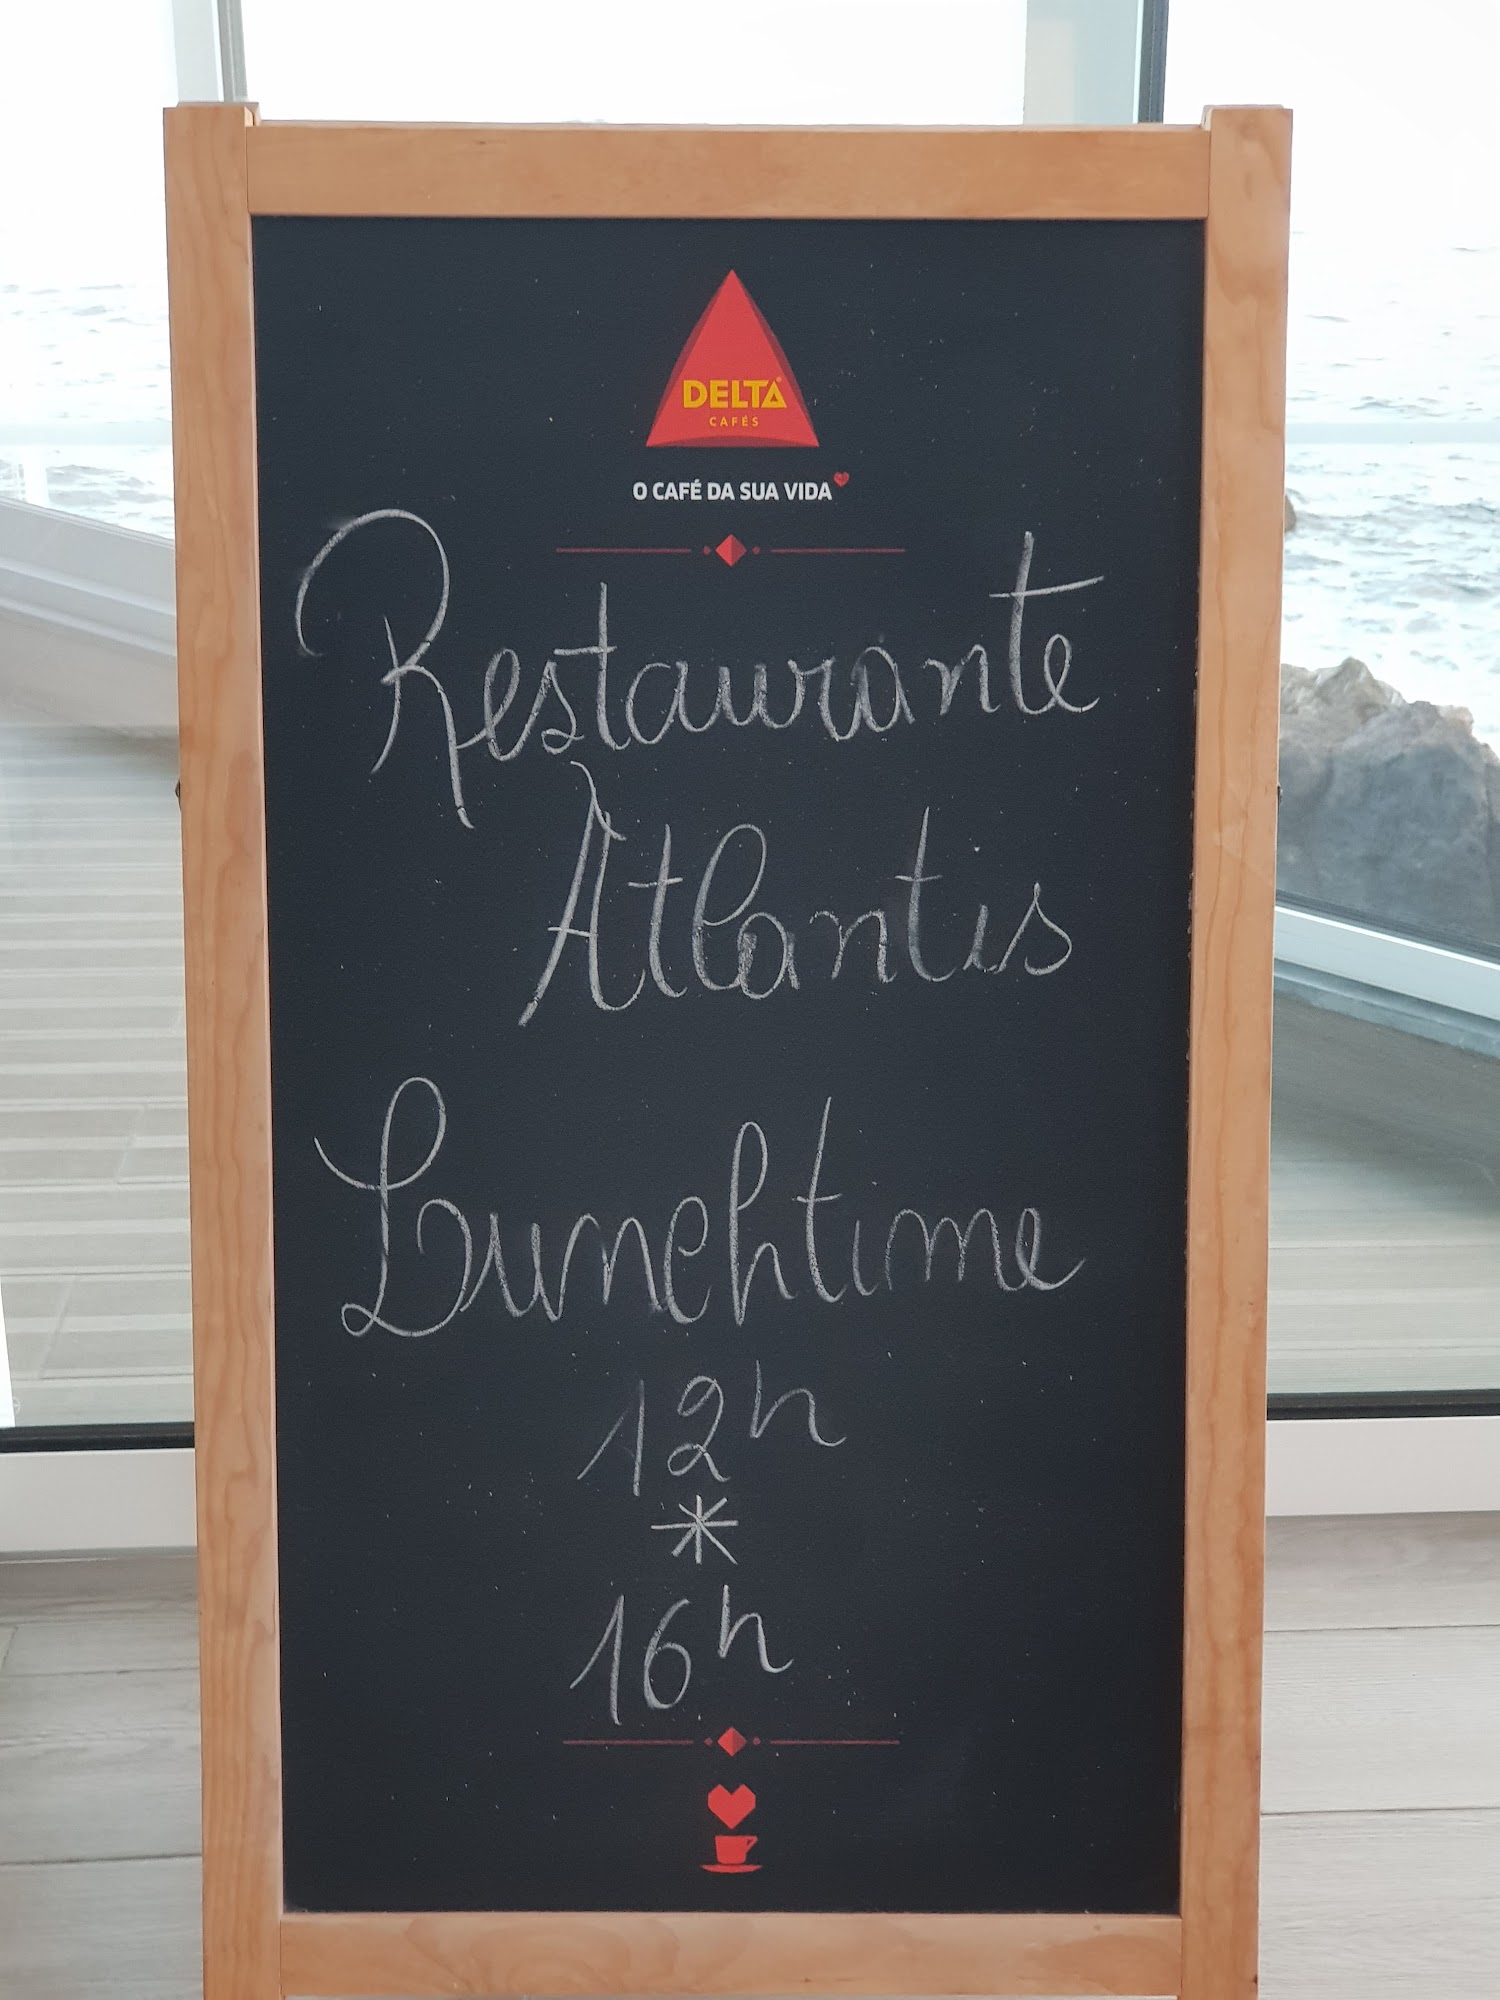 DELTA
CAFÉS
O CAFÉ DA SUA VIDA
Restaurante
Atlantis
Lunchtime
12h
*
16h